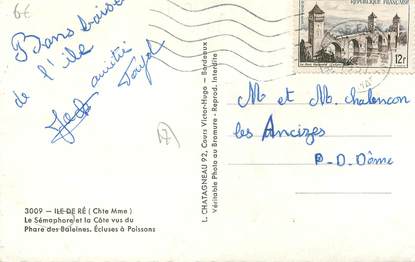 6€
Bons baisers
de l'île
amitié
17
3009 — ILE DE RÉ (Chte Mme)
Le Sémaphore et la Côte vus du
Phare des Baleines. Écluses à Poissons
L. CHATAGNEAU 92, Cours Victor-Hugo - Bordeaux
Véritable Photo au Bromure - Reprod. Interdite
REPUBLIQUE FRANÇAISE
12F
M et M. chalencon
les Ancizes
P-D-Dôme